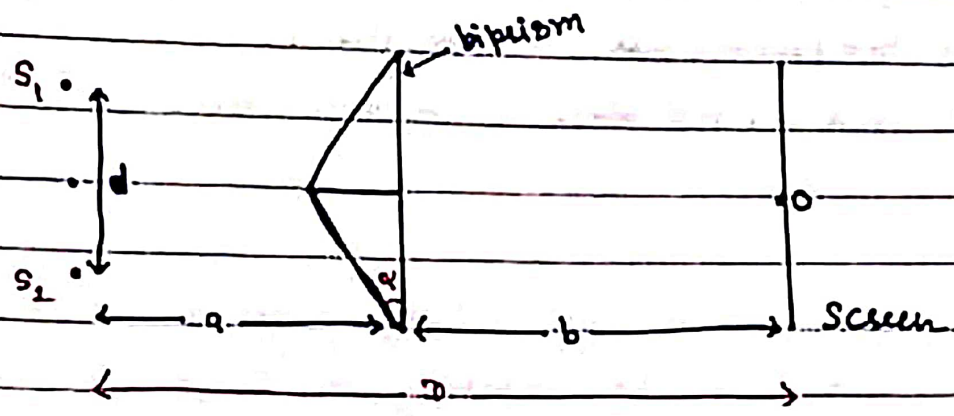 biprism
S1
d
O
S2
α
a
b
Screen
D